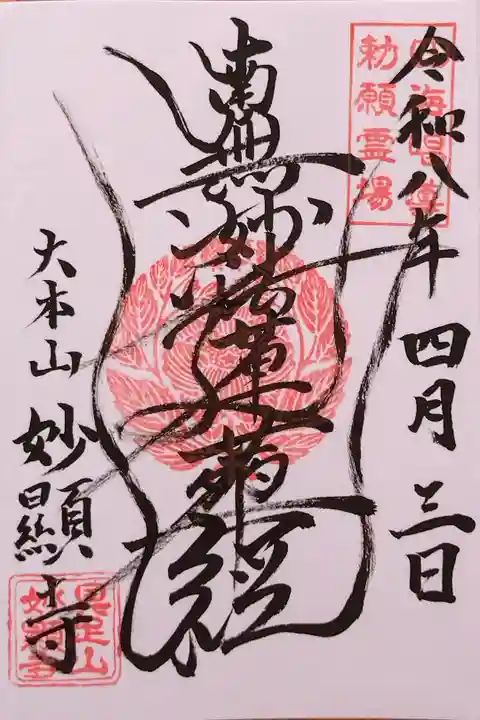 四海唱導
勅願霊場
令和八年 四月 三日
南無妙法蓮華経
大本山 妙顯寺
具足山
妙顯寺